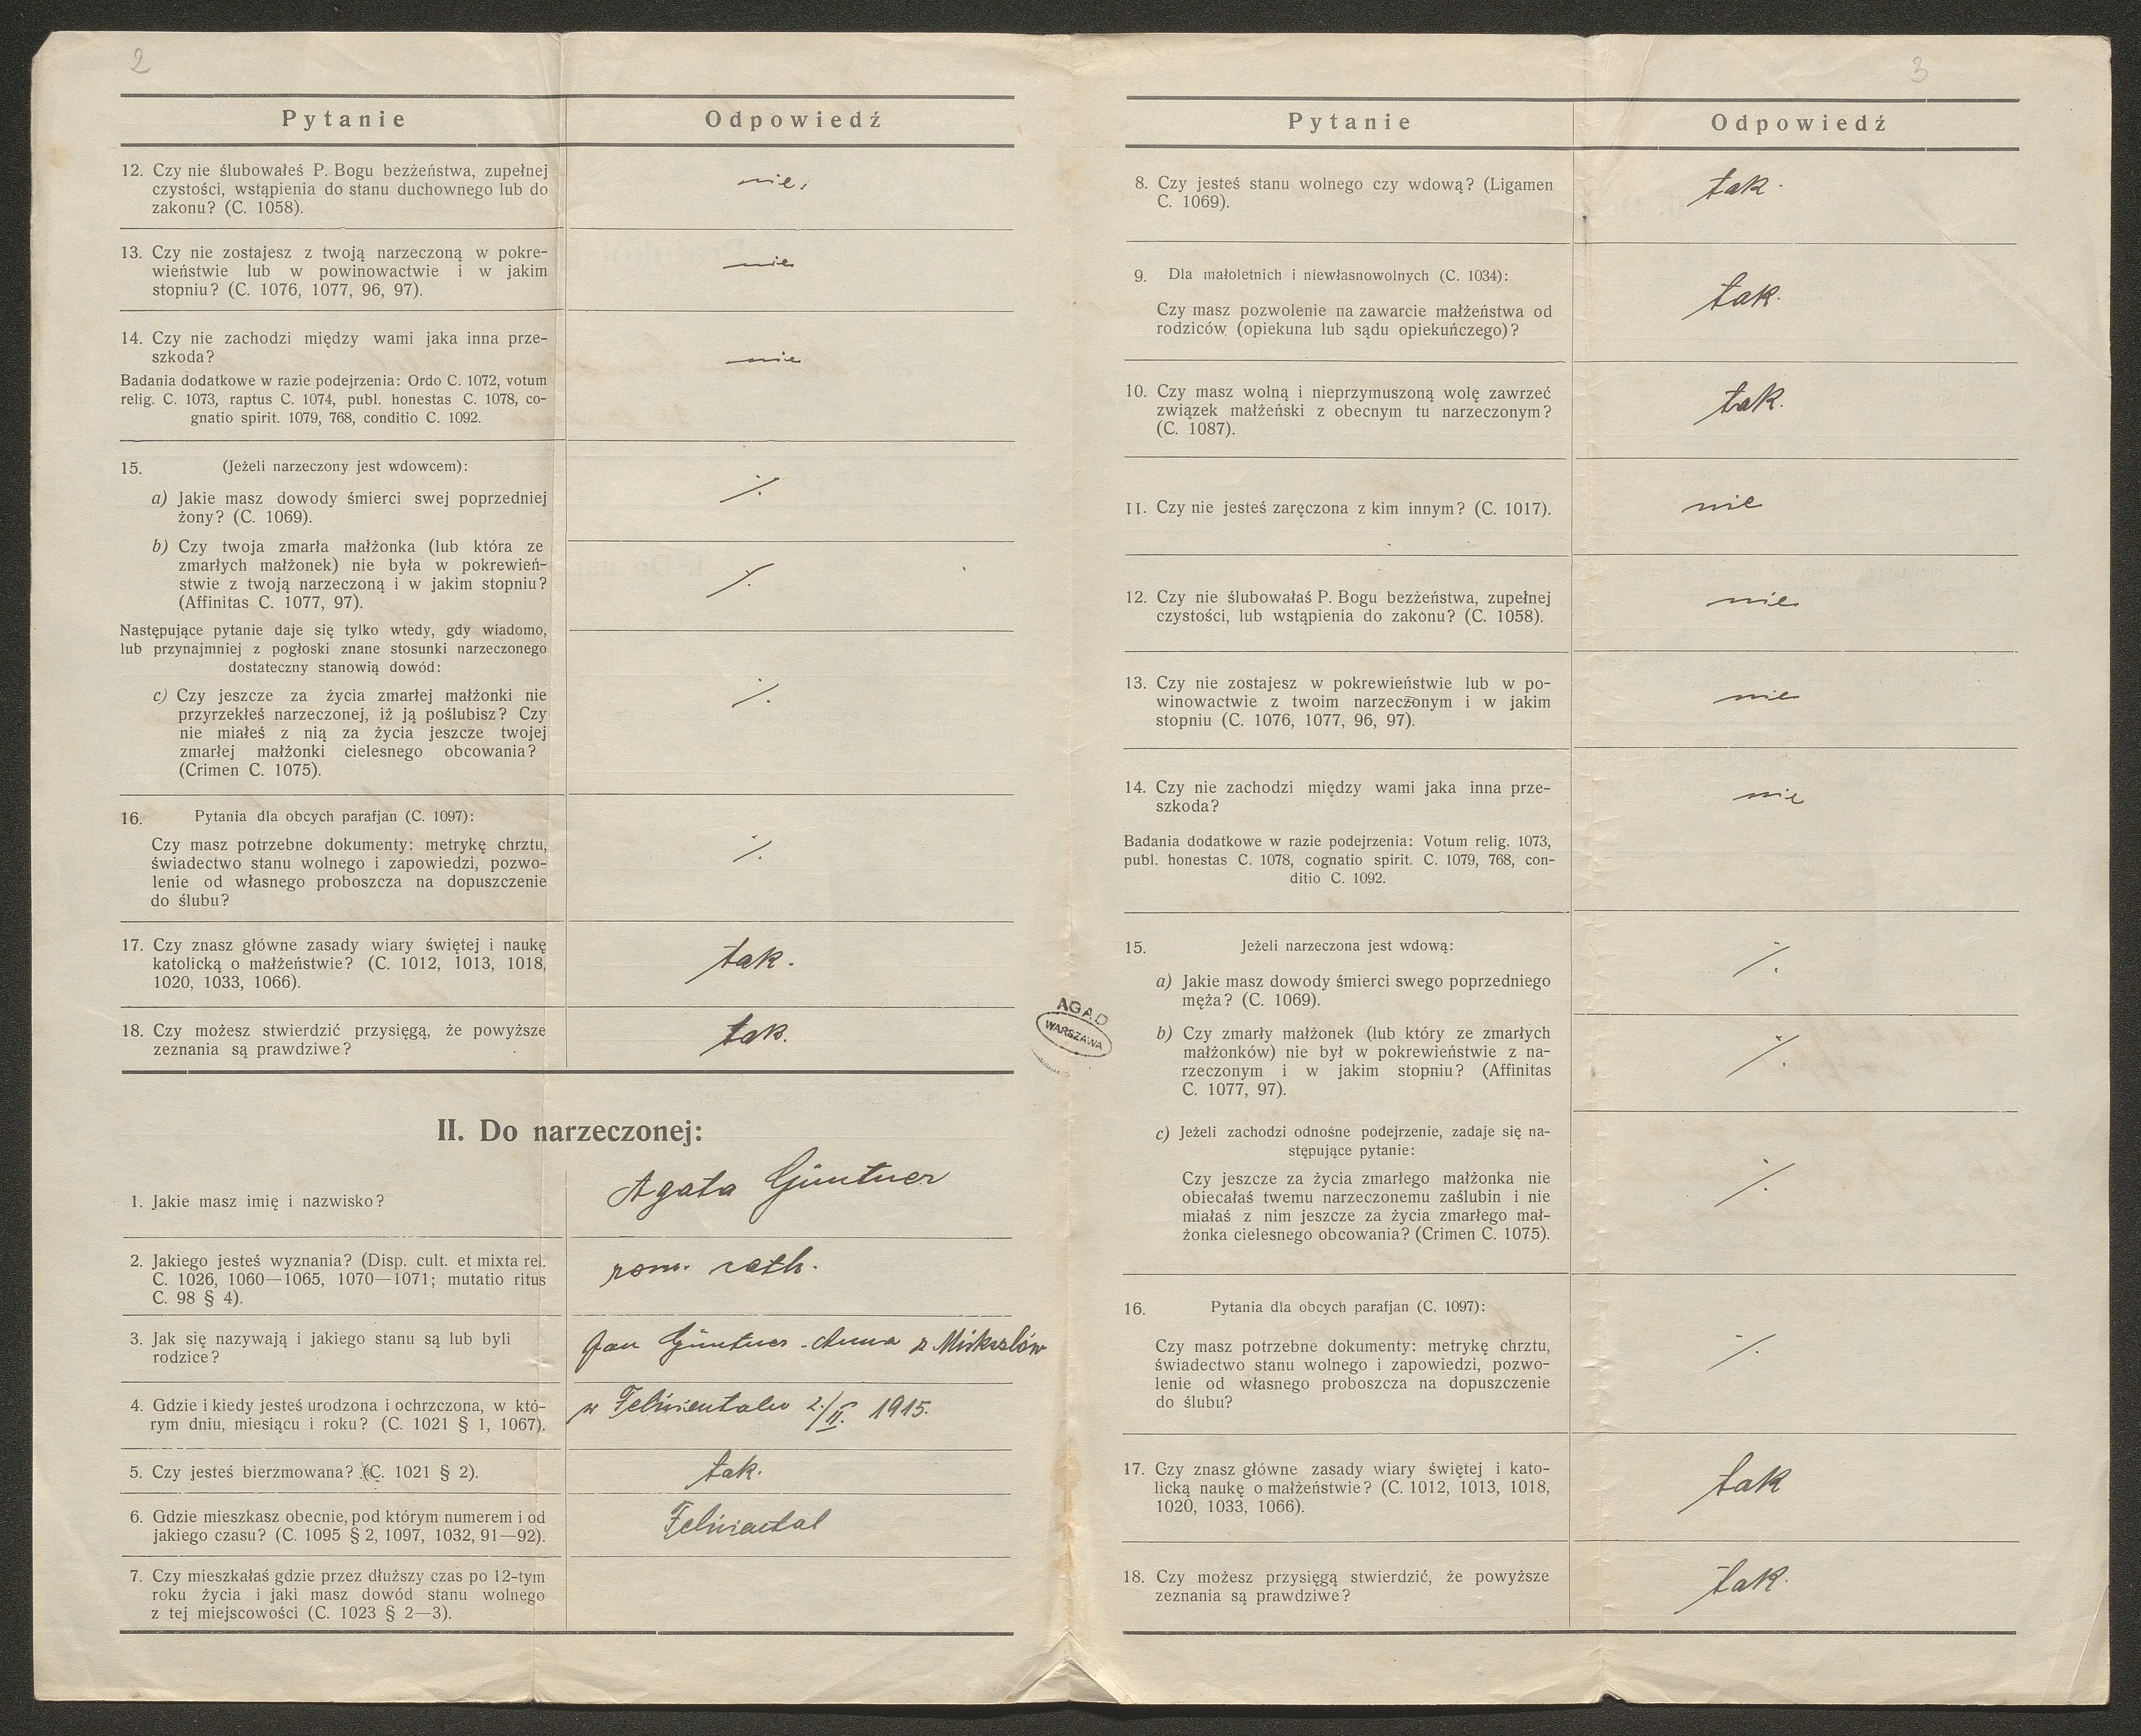 2
Pytanie
Odpowiedź
12. Czy nie ślubowałeś P. Bogu bezżeństwa, zupełnej
czystości, wstąpienia do stanu duchownego lub do
zakonu? (C. 1058).
nie.
13. Czy nie zostajesz z twoją narzeczoną w pokre-
wieństwie lub w powinowactwie i w jakim
stopniu? (C. 1076, 1077, 96, 97).
nie
14. Czy nie zachodzi między wami jaka inna prze-
szkoda?
nie
Badania dodatkowe w razie podejrzenia: Ordo C. 1072, votum
relig. C. 1073, raptus C. 1074, publ. honestas C. 1078, co-
gnatio spirit. 1079, 768, conditio C. 1092.
15. (Jeżeli narzeczony jest wdowcem):
a) Jakie masz dowody śmierci swej poprzedniej
żony? (C. 1069).
·/.
b) Czy twoja zmarła małżonka (lub która ze
zmarłych małżonek) nie była w pokrewień-
stwie z twoją narzeczoną i w jakim stopniu?
(Affinitas C. 1077, 97).
·/.
Następujące pytanie daje się tylko wtedy, gdy wiadomo,
lub przynajmniej z pogłoski znane stosunki narzeczonego
dostateczny stanowią dowód:
c) Czy jeszcze za życia zmarłej małżonki nie
przyrzekłeś narzeczonej, iż ją poślubisz? Czy
nie miałeś z nią za życia jeszcze twojej
zmarłej małżonki cielesnego obcowania?
(Crimen C. 1075).
·/.
16. Pytania dla obcych parafjan (C. 1097):
Czy masz potrzebne dokumenty: metrykę chrztu,
świadectwo stanu wolnego i zapowiedzi, pozwo-
lenie od własnego proboszcza na dopuszczenie
do ślubu?
·/.
17. Czy znasz główne zasady wiary świętej i naukę
katolicką o małżeństwie? (C. 1012, 1013, 1018,
1020, 1033, 1066).
tak.
18. Czy możesz stwierdzić przysięgą, że powyższe
zeznania są prawdziwe?
tak.
II. Do narzeczonej:
1. Jakie masz imię i nazwisko?
Agata Güntner
2. Jakiego jesteś wyznania? (Disp. cult. et mixta rel.
C. 1026, 1060—1065, 1070—1071; mutatio ritus
C. 98 § 4).
rom. cath.
3. Jak się nazywają i jakiego stanu są lub byli
rodzice?
Jan Güntner - Anna z
4. Gdzie i kiedy jesteś urodzona i ochrzczona, w któ-
rym dniu, miesiącu i roku? (C. 1021 § 1, 1067).
w 2./II. 1915.
5. Czy jesteś bierzmowana? (C. 1021 § 2).
tak.
6. Gdzie mieszkasz obecnie, pod którym numerem i od
jakiego czasu? (C. 1095 § 2, 1097, 1032, 91—92).
7. Czy mieszkałaś gdzie przez dłuższy czas po 12-tym
roku życia i jaki masz dowód stanu wolnego
z tej miejscowości (C. 1023 § 2—3).
AGAD
WARSZAWA
3
Pytanie
Odpowiedź
8. Czy jesteś stanu wolnego czy wdową? (Ligamen
C. 1069).
tak.
9. Dla małoletnich i niewłasnowolnych (C. 1034):
Czy masz pozwolenie na zawarcie małżeństwa od
rodziców (opiekuna lub sądu opiekuńczego)?
tak.
10. Czy masz wolną i nieprzymuszoną wolę zawrzeć
związek małżeński z obecnym tu narzeczonym?
(C. 1087).
tak.
11. Czy nie jesteś zaręczona z kim innym? (C. 1017).
nie
12. Czy nie ślubowałaś P. Bogu bezżeństwa, zupełnej
czystości, lub wstąpienia do zakonu? (C. 1058).
nie
13. Czy nie zostajesz w pokrewieństwie lub w po-
winowactwie z twoim narzeczonym i w jakim
stopniu (C. 1076, 1077, 96, 97).
nie
14. Czy nie zachodzi między wami jaka inna prze-
szkoda?
nie
Badania dodatkowe w razie podejrzenia: Votum relig. 1073,
publ. honestas C. 1078, cognatio spirit. C. 1079, 768, con-
ditio C. 1092.
15. Jeżeli narzeczona jest wdową:
a) Jakie masz dowody śmierci swego poprzedniego
męża? (C. 1069).
·/.
b) Czy zmarły małżonek (lub który ze zmarłych
małżonków) nie był w pokrewieństwie z na-
rzeczonym i w jakim stopniu? (Affinitas
C. 1077, 97).
·/.
c) Jeżeli zachodzi odnośne podejrzenie, zadaje się na-
stępujące pytanie:
Czy jeszcze za życia zmarłego małżonka nie
obiecałaś twemu narzeczonemu zaślubin i nie
miałaś z nim jeszcze za życia zmarłego mał-
żonka cielesnego obcowania? (Crimen C. 1075).
·/.
16. Pytania dla obcych parafjan (C. 1097):
Czy masz potrzebne dokumenty: metrykę chrztu,
świadectwo stanu wolnego i zapowiedzi, pozwo-
lenie od własnego proboszcza na dopuszczenie
do ślubu?
·/.
17. Czy znasz główne zasady wiary świętej i kato-
licką naukę o małżeństwie? (C. 1012, 1013, 1018,
1020, 1033, 1066).
tak
18. Czy możesz przysięgą stwierdzić, że powyższe
zeznania są prawdziwe?
tak.